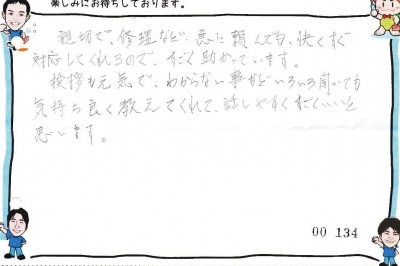 楽しみにお待ちしております。
親切で、修理など、急に頼んでも、快くすぐ
対応してくれるので、すごく助かっています。
挨拶も元気で、わからない事などいろいろ聞いても
気持ち良く教えてくれて、話しやすくすごくいいと
思います。
00 134